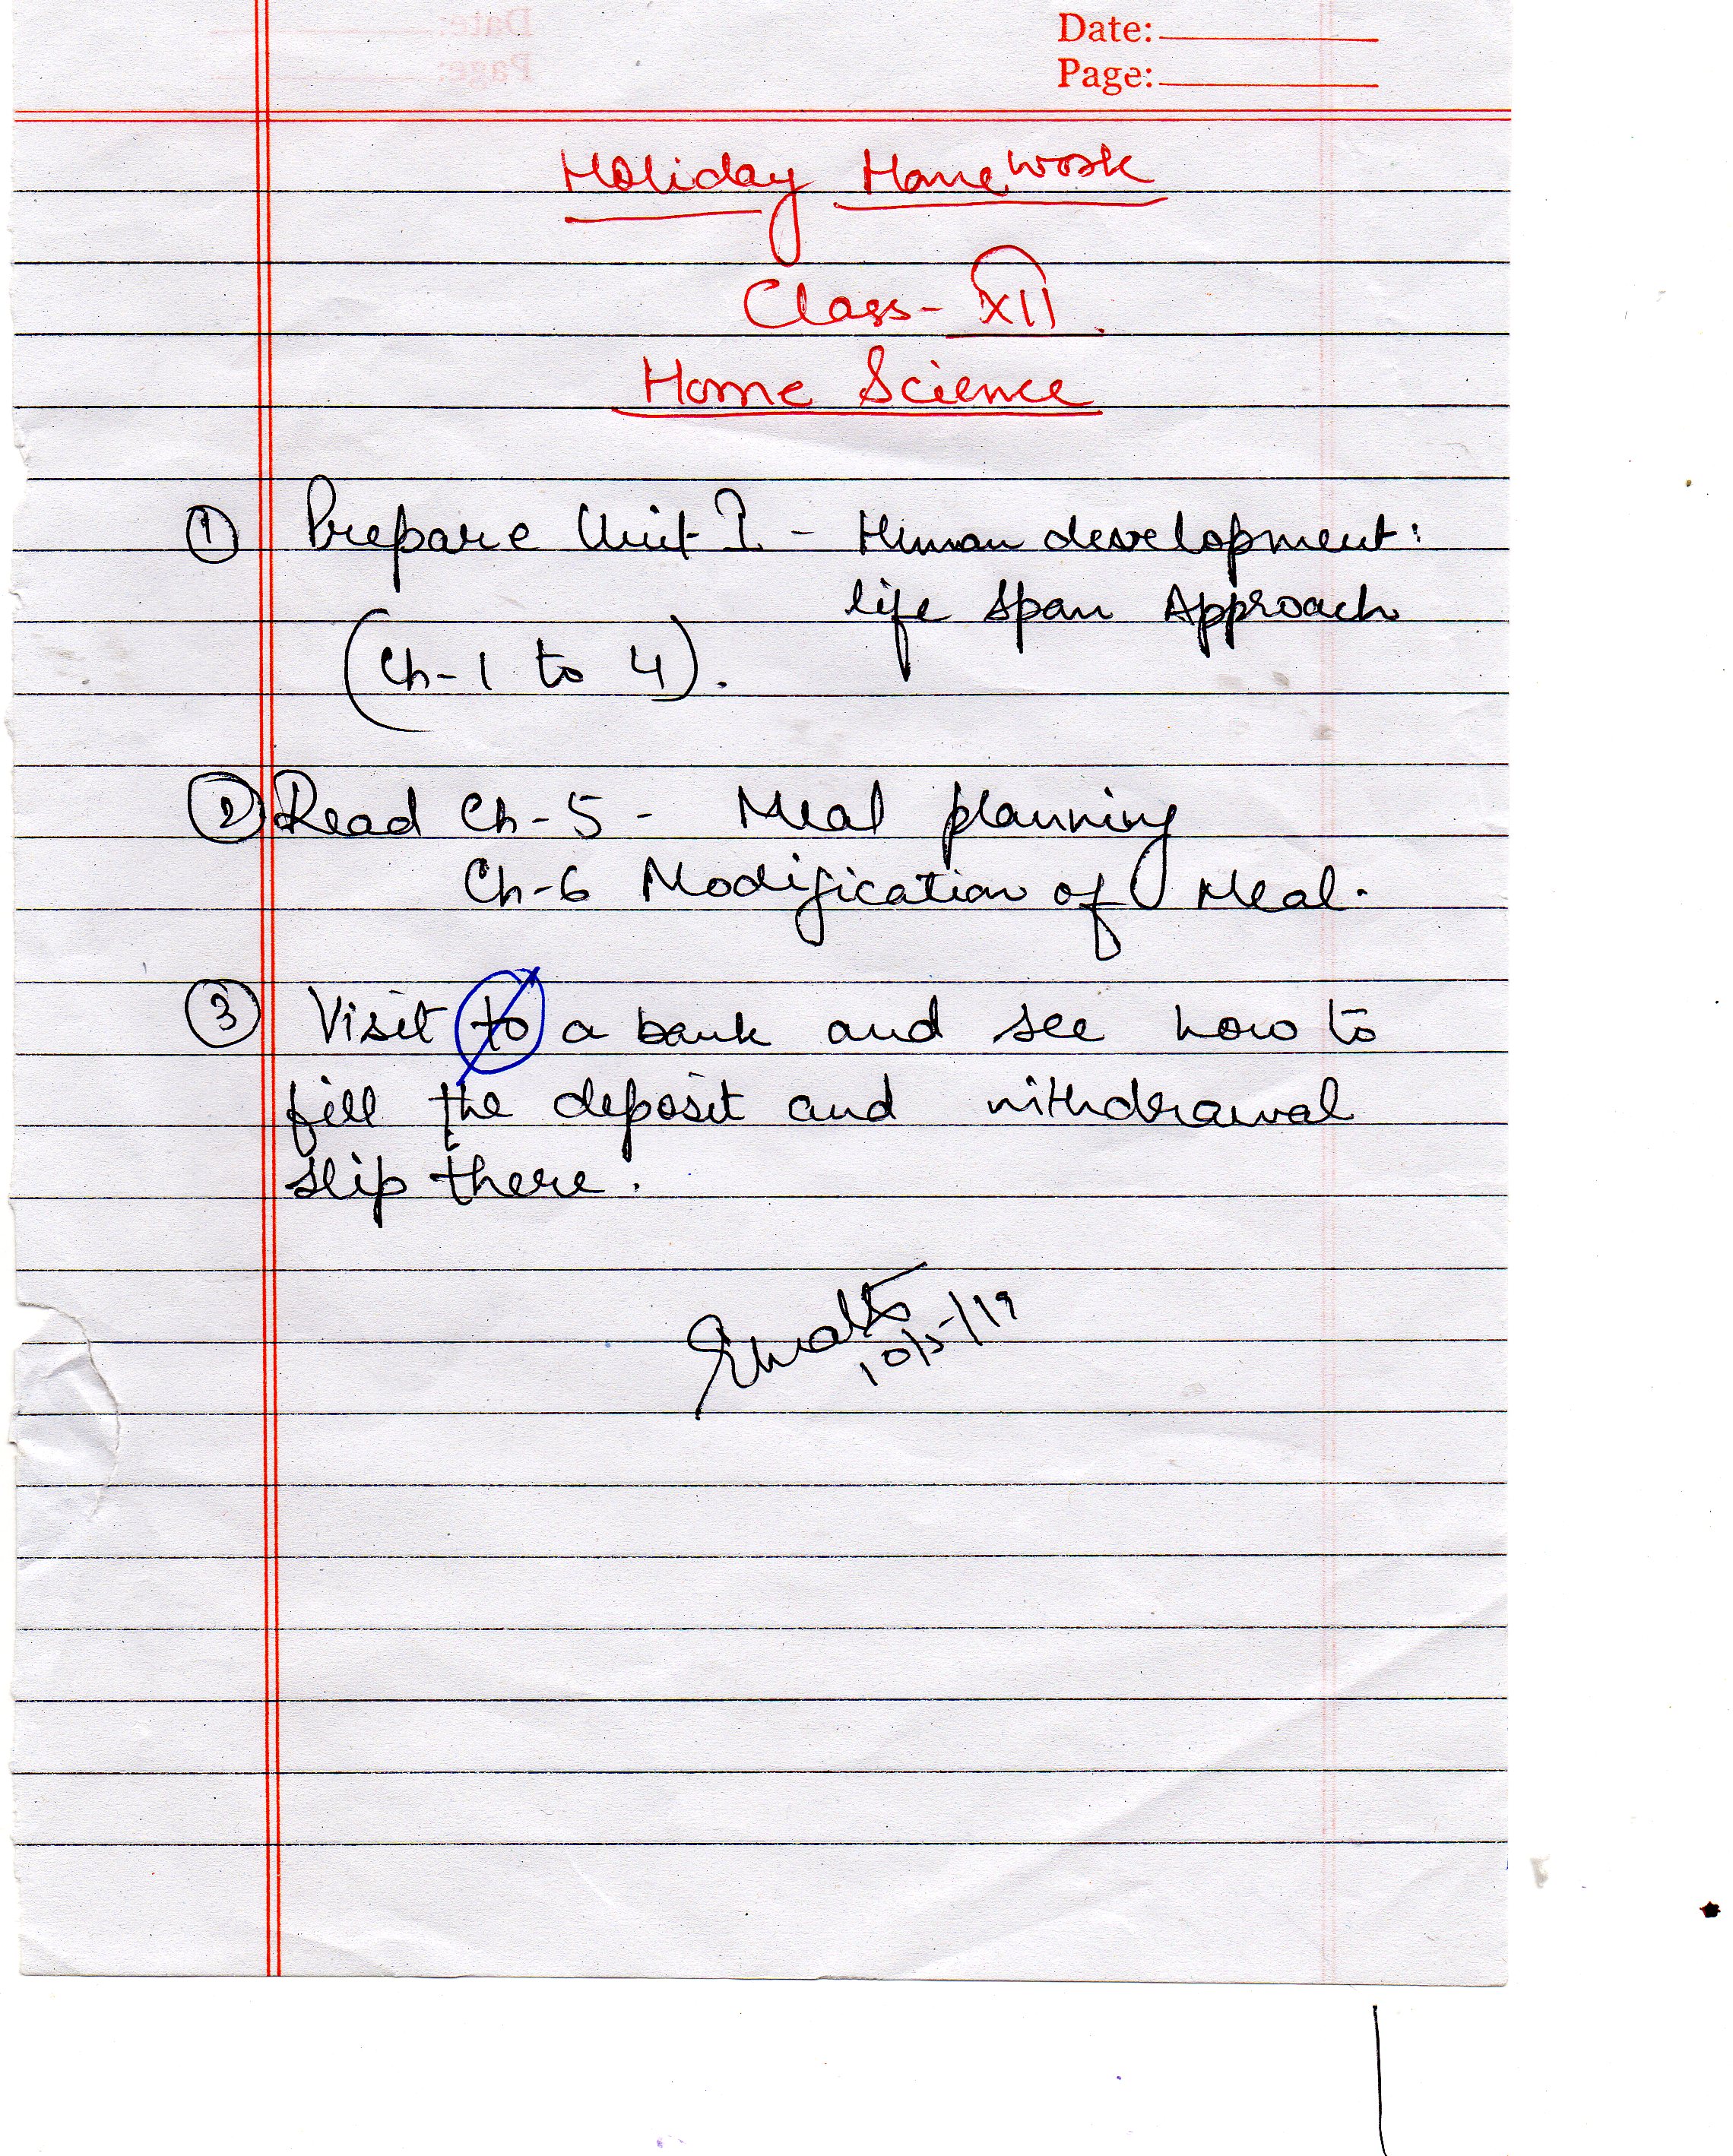 Date:
Page:
Holiday Home Work
Class - XII
Home Science
① Prepare Unit I - Human development:
life span Approach
(Ch-1 to 4).
② Read Ch-5 - Meal planning
Ch-6 Modification of Meal.
③ Visit to a bank and see how to
fill the deposit and withdrawal
slip there.
10/5/19